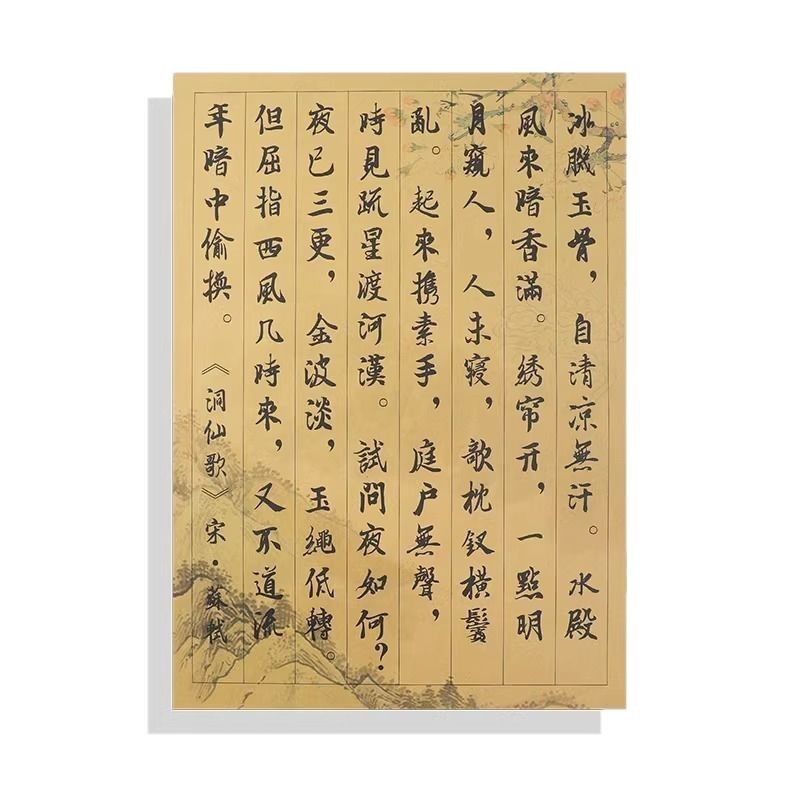 冰肌玉骨，自清凉無汗。水殿
風來暗香滿。绣帘开，一點明
月窺人，人未寝，欹枕釵橫鬓
亂。起來携素手，庭户無聲，
時見疏星渡河漢。試問夜如何?
夜已三更，金波淡，玉繩低轉。
但屈指西風几時來，又不道流
年暗中偷换。《洞仙歌》宋·蘇軾